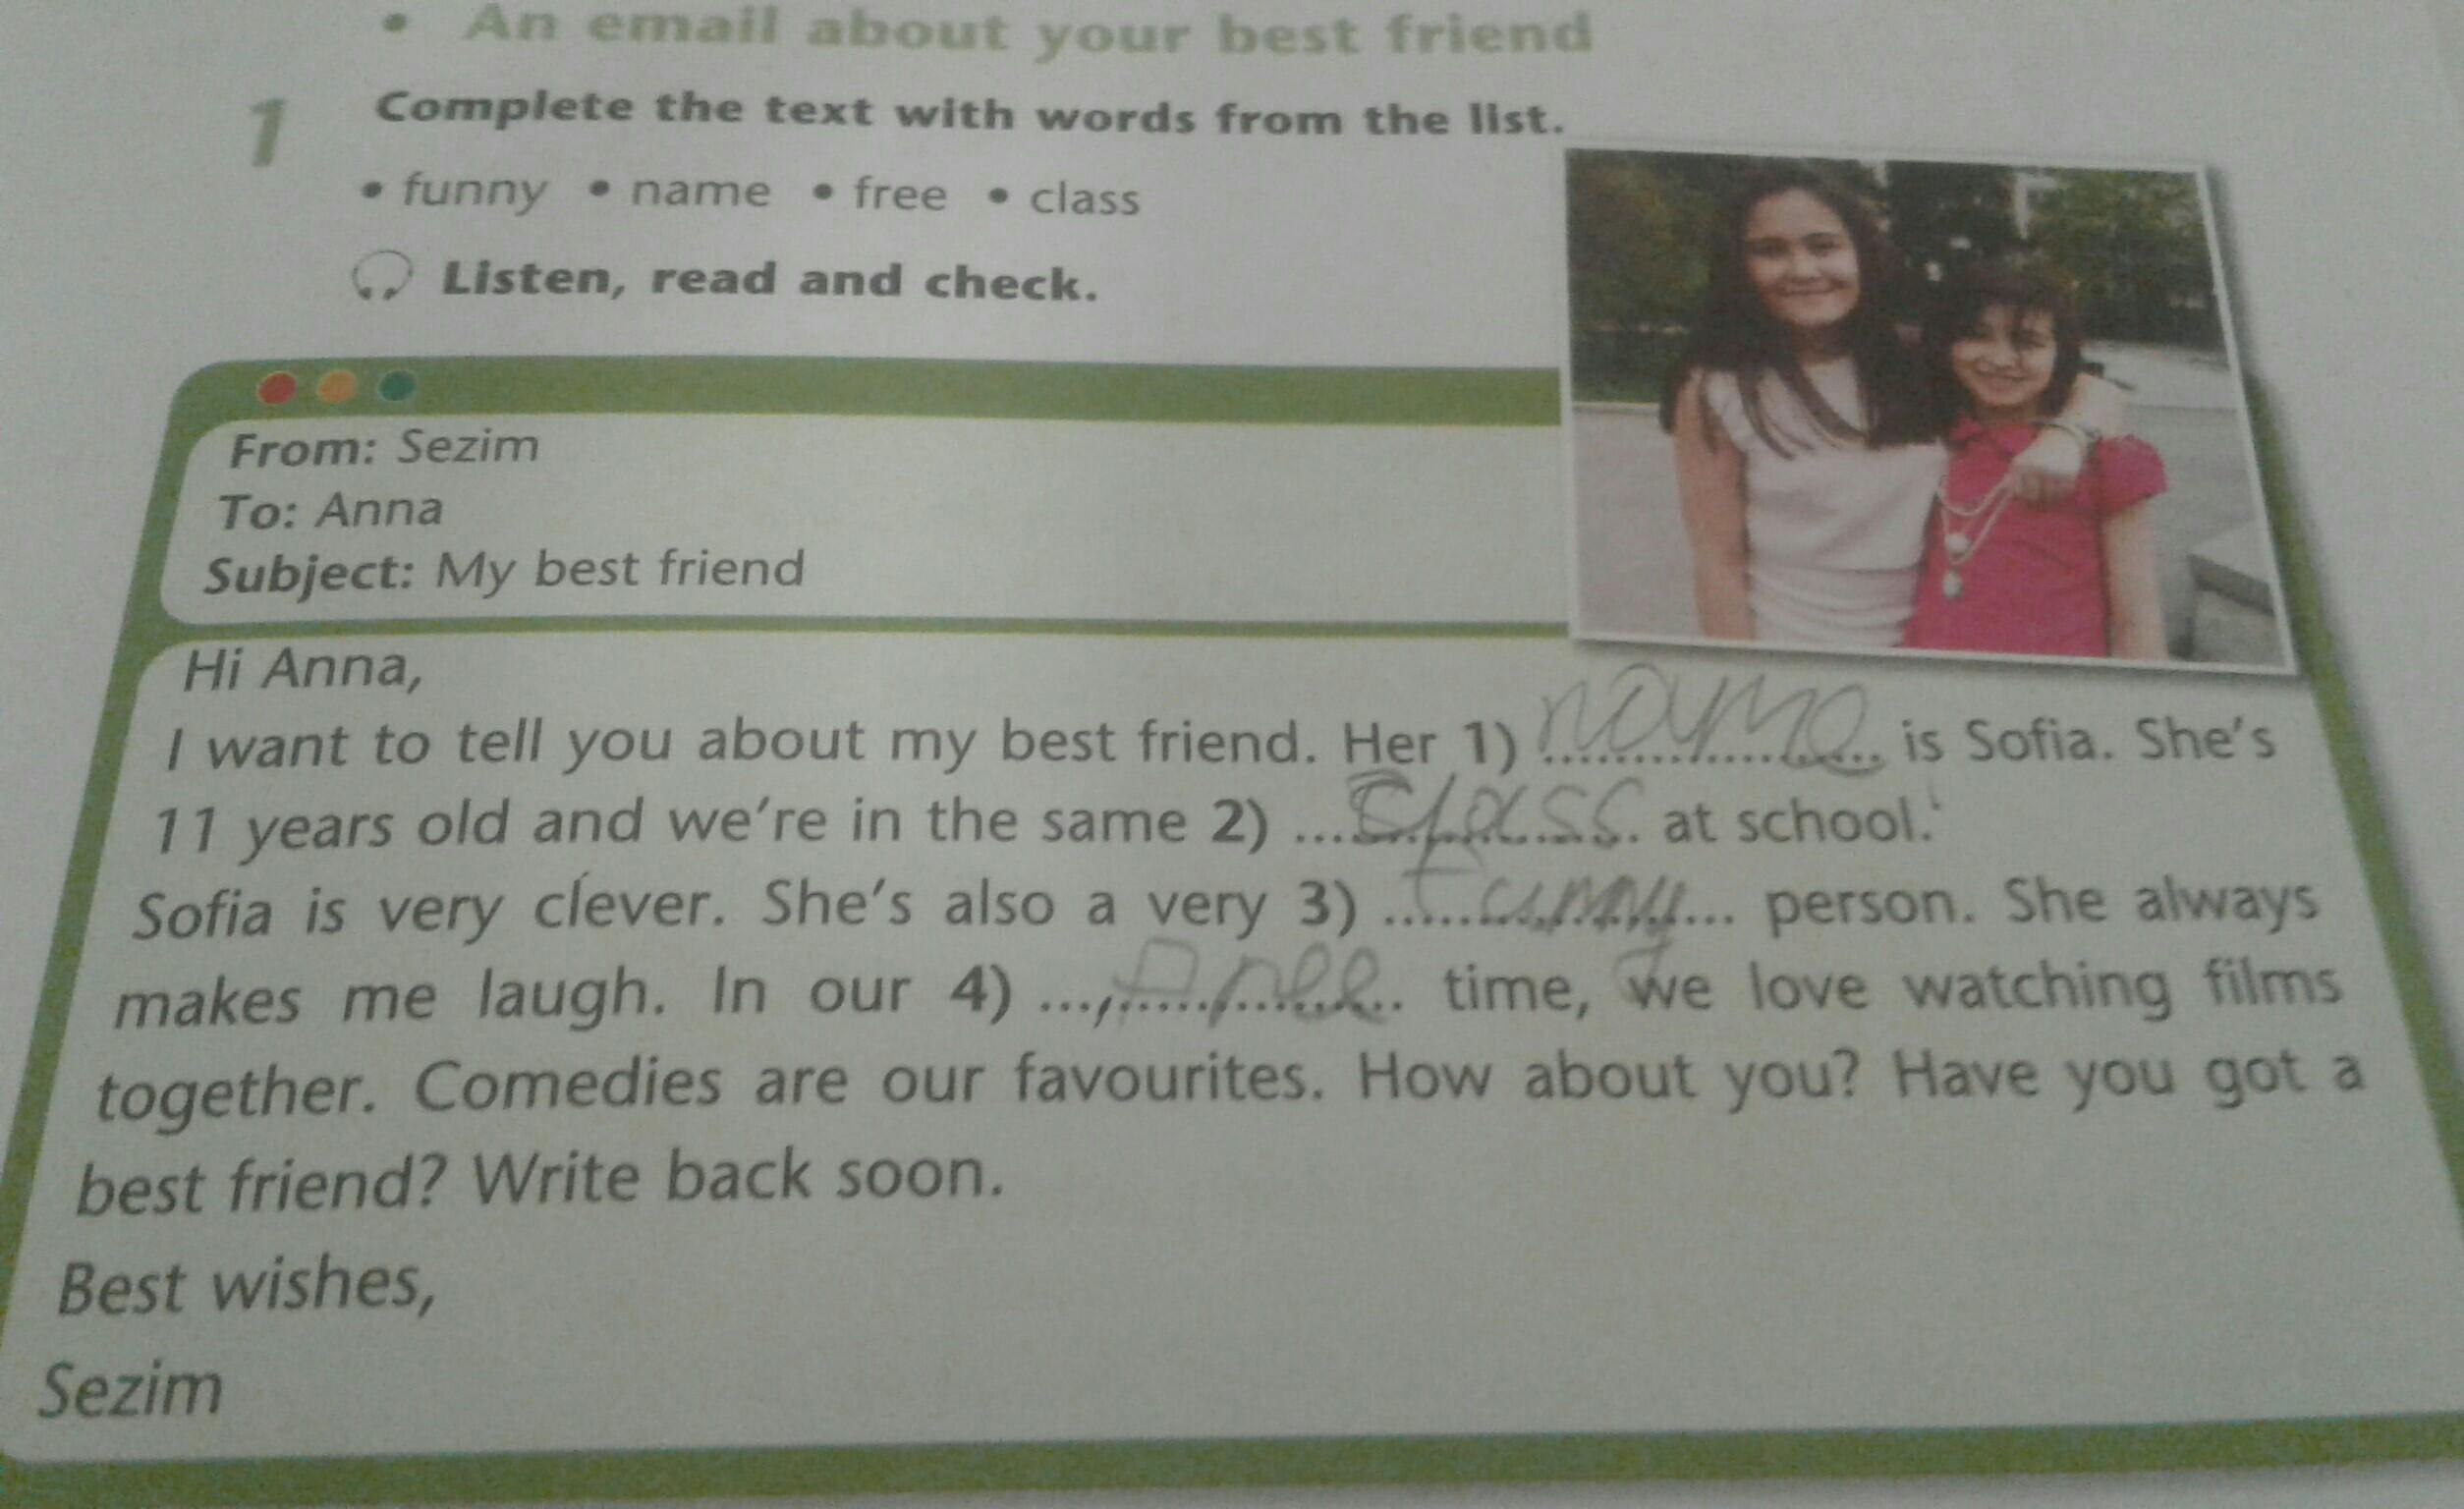 • An email about your best friend
1 Complete the text with words from the list.
• funny • name • free • class
Listen, read and check.
From: Sezim
To: Anna
Subject: My best friend
Hi Anna,
I want to tell you about my best friend. Her 1) name is Sofia. She's
11 years old and we're in the same 2) class at school.
Sofia is very clever. She's also a very 3) funny person. She always
makes me laugh. In our 4) free time, we love watching films
together. Comedies are our favourites. How about you? Have you got a
best friend? Write back soon.
Best wishes,
Sezim